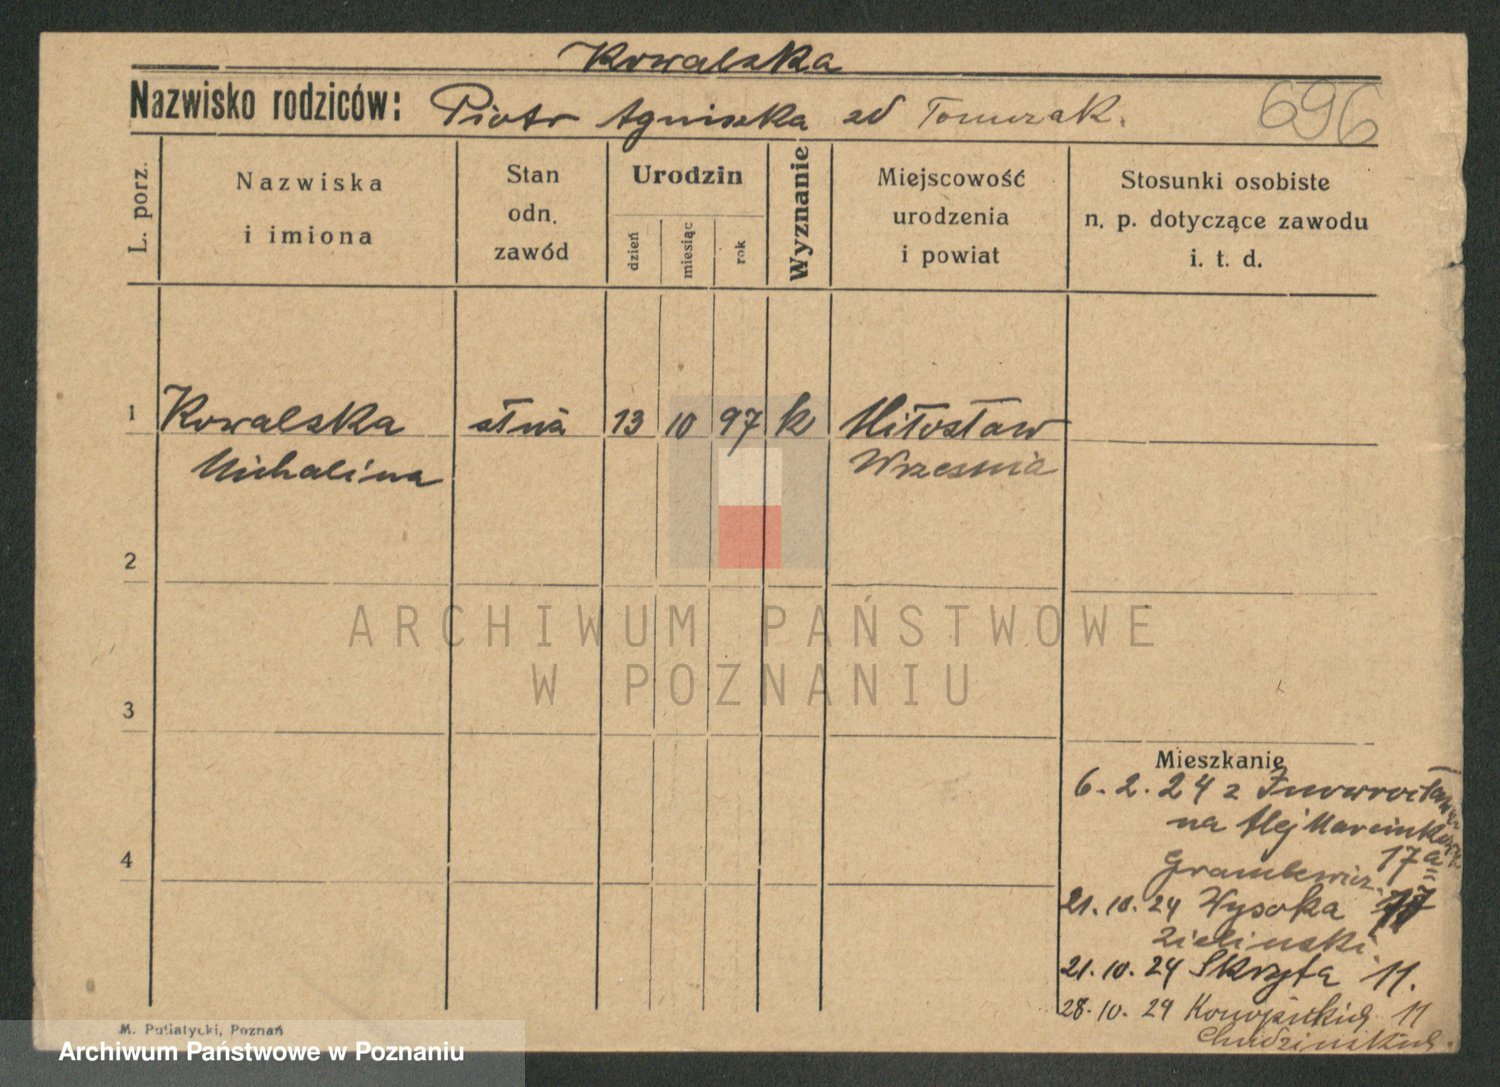 Kowalska
Nazwisko rodziców: Piotr Agniszka zd Tomczak.
696
L. porz.
Nazwiska
i imiona
Stan
odn.
zawód
Urodzin
dzień
miesiąc
rok
Wyznanie
Miejscowość
urodzenia
i powiat
Stosunki osobiste
n. p. dotyczące zawodu
i. t. d.
1 Kowalska służ 13 10 97 k Miłosław
Michalina Wrzesnia
2
3
4
ARCHIWUM PAŃSTWOWE
W POZNANIU
Mieszkanie
6. 2. 24 z Inowrocławia
na Alej Marcinkowsk
17a
21. 10. 24 Wysoka
Zielinski.
21. 10. 24 Skryta 11.
28. 10. 24 11
Chudzinskich.
M. Putiatycki, Poznań
Archiwum Państwowe w Poznaniu